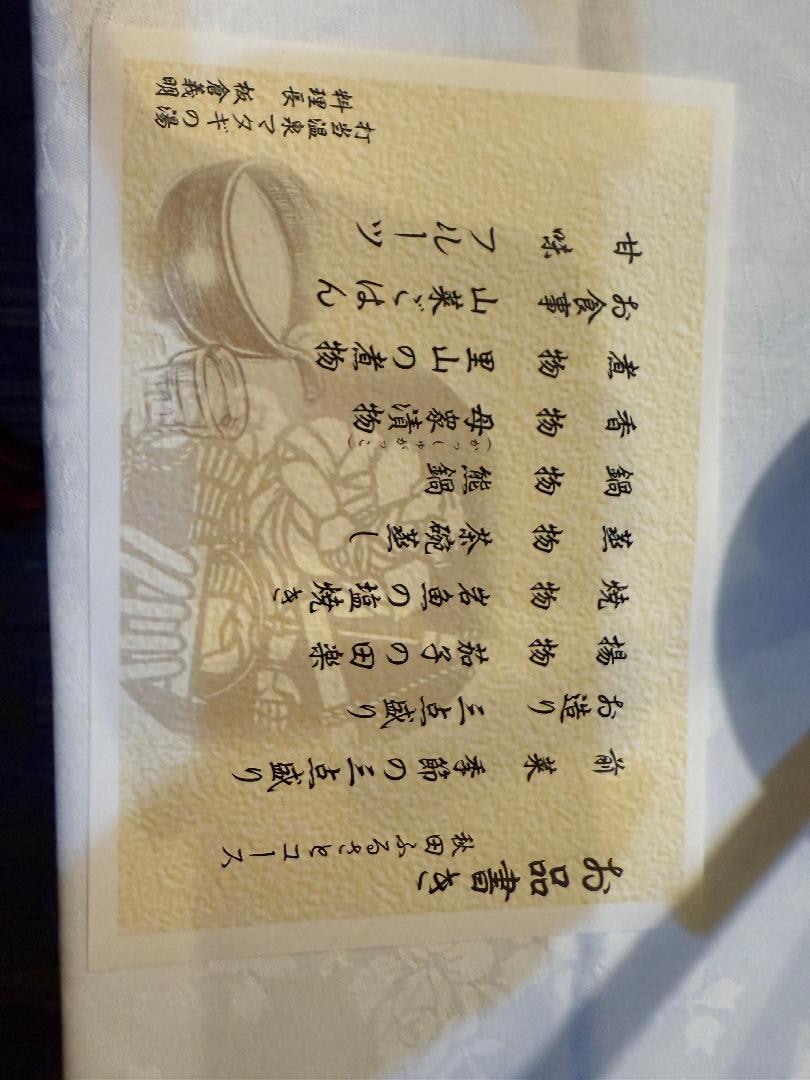 お品書き
秋田ふるさとコース
前菜 季節の三点盛り
お造り 三点盛り
揚物 茄子の田楽
焼物 岩魚の塩焼き
蒸物 茶碗蒸し
鍋物 熊鍋
香物 母衆漬物
(がっしゅがっこ)
煮物 里山の煮物
お食事 山菜ごはん
甘味 フルーツ
打当温泉マタギの湯
料理長 板倉義明